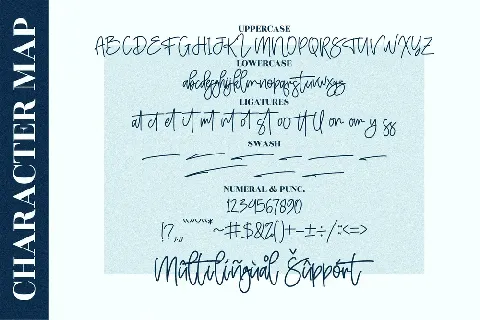 CHARACTER MAP
UPPERCASE
ABCDEFGHIJKLMNOPQRSTUVWXYZ
LOWERCASE
abcdefghijklmnopqrstuvwxyz
LIGATURES
at ct et it mt nt ot st tt
SWASH
NUMERAL & PUNC.
1234567890
!?,.,""''*~#$&%()+-±÷/:<=>
Mûltilíñgùål Šûppórt